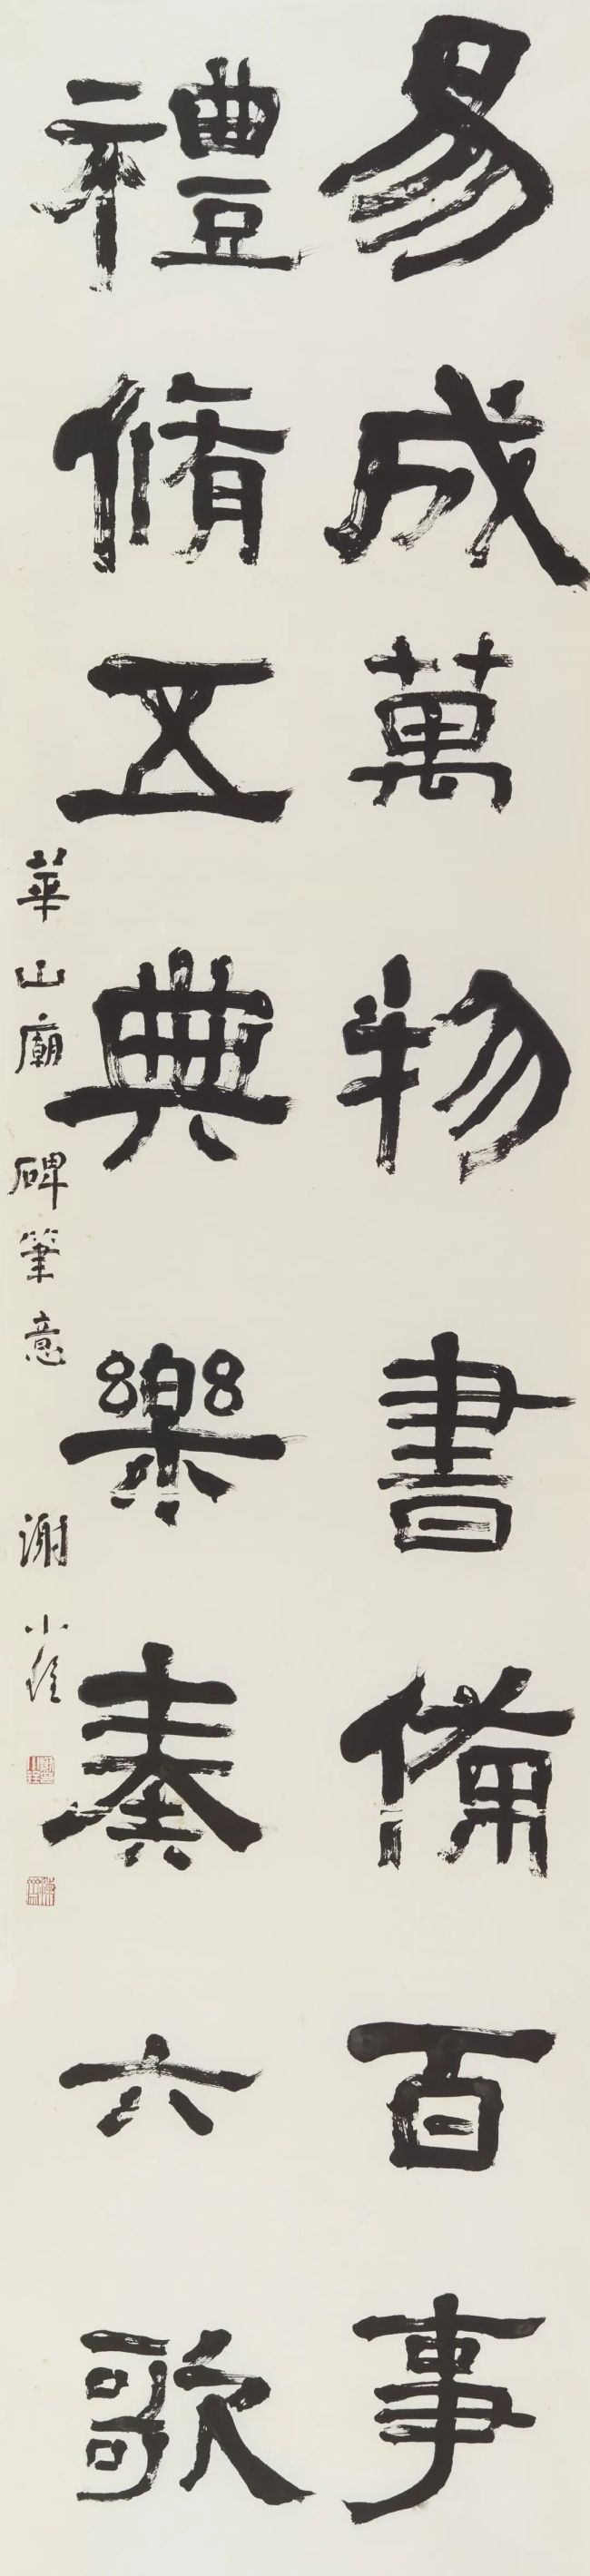 易成萬物書備百事
禮脩五典樂奏六歌
華山廟碑筆意 謝小銓